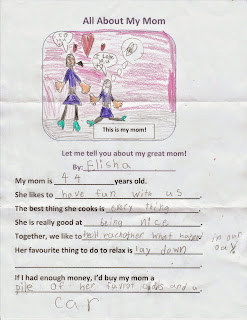 All About My Mom
This is my mom!
Let me tell you about my great mom!
By: Elisha
My mom is 44 years old.
She likes to have fun with us
The best thing she cooks is evry thing
She is really good at being nice
Together, we like to tell eachother what happen in our day
Her favourite thing to do to relax is lay down
If I had enough money, I'd buy my mom a
pile of her favrot and a
car